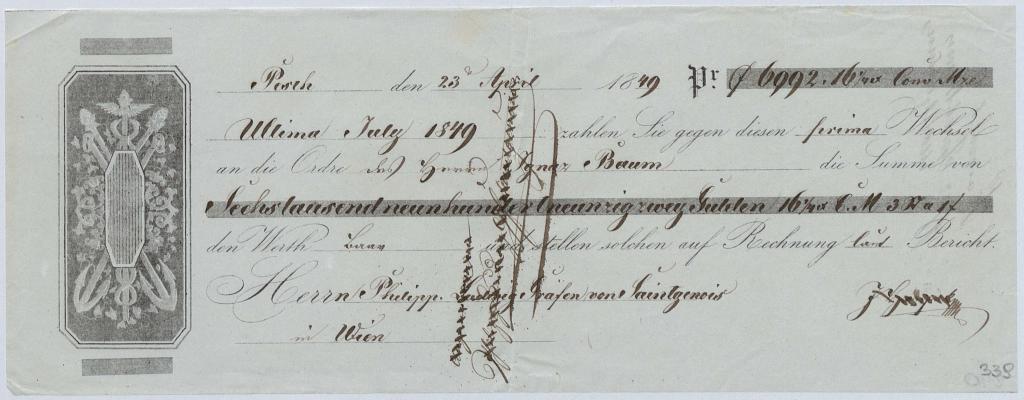 Pesth den 23 April 1849 Pr f 6992.16 Conv Mze
Ultimo July 1849 zahlen Sie gegen diesen prima Wechsel
an die Ordre des Herrn Ignaz Baum die Summe von
Sechstausendneunhundertneunzigzwey Gulden 16 C.M 3 a 1f
den Werth baar und stellen solchen auf Rechnung laut Bericht.
Herrn Philipp Grafen von Saintgenois
in Wien
339